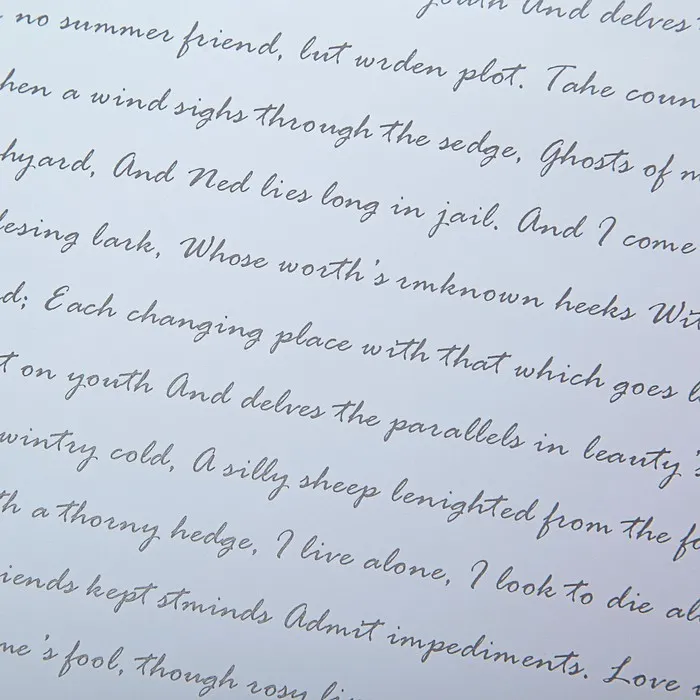 youth And delves
no summer friend, but wrden plot. Take coun
hen a wind sighs through the sedge, Ghosts of m
hyard, And Ned lies long in jail. And I come
lesing lark, Whose worth's rmknown heeks Wit
d; Each changing place with that which goes b
t on youth And delves the parallels in leauty's
wintry cold, A silly sheep lenighted from the fo
th a thorny hedge, I live alone, I look to die al
iends kept stminds Admit impediments. Love
me's fool, though rosy li